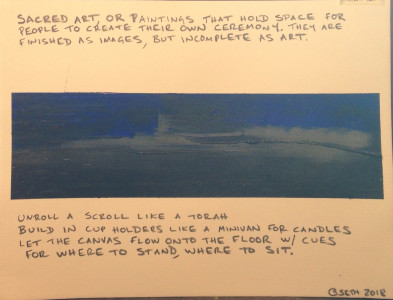 SACRED ART, OR PAINTINGS THAT HOLD SPACE FOR
PEOPLE TO CREATE THEIR OWN CEREMONY. THEY ARE
FINISHED AS IMAGES, BUT INCOMPLETE AS ART.
UNROLL A SCROLL LIKE A TORAH
BUILD IN CUP HOLDERS LIKE A MINIVAN FOR CANDLES
LET THE CANVAS FLOW ONTO THE FLOOR W/ CUES
FOR WHERE TO STAND, WHERE TO SIT.
©SETH 2018